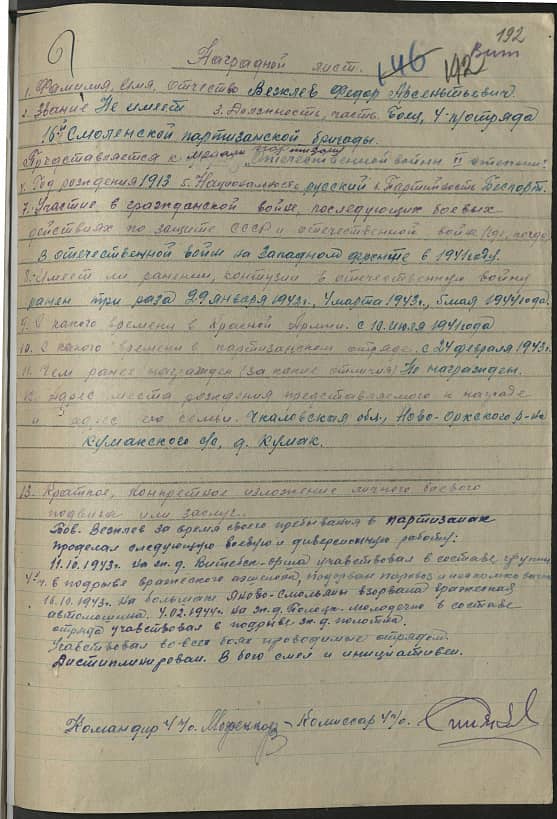 192
146 192
Вит
Наградной лист.
1. Фамилия, имя, отчество Везляев Федор Авсентьевич
2. Звание Не имеет 3. Должность, часть Боец, 4-го отряда
16й Смоленской партизанской бригады.
Представляется к медали партизану "Отечественной войны II степени".
4. Год рождения 1913 5. Национальность русский 6. Партийность Беспарт.
7. Участие в гражданской войне, последующих боевых
действиях по защите СССР и отечественной войне (где, когда)
В отечественной войне на Западном фронте в 1941 году.
8. Имеет ли ранения, контузии в отечественную войну
ранен три раза 29 января 1943г., 4 марта 1943г., 5 мая 1944 года
9. С какого времени в Красной Армии. с 10 июля 1941 года
10. С какого времени в партизанском отряде. с 24 февраля 1943г.
11. Чем ранее награжден (за какие отличия) Не награжден.
12. Адрес места рождения представляемого к награде
и адрес его семьи. Чкаловская обл., Ново-Орского р-на
Кумакского с/с, д. Кумак.
13. Краткое, конкретное изложение личного боевого
подвига или заслуг.
Тов. Везляев за время своего пребывания в партизанах
проделал следующую боевую и диверсионную работу:
11.10.1943г. на ж.д. Витебск-Орша учавствовал в составе группы
в подрыве вражеского эшелона, подорван паровоз и несколько вагон
16.10.1943г. На большаке Яново-Смольяны взорвана вражеская
автомашина. 4.02.1944г. на ж.д. Полоцк-Молодечно в составе
отряда учавствовал в подрыве ж.д. полотна.
Учавствовал во всех боях проводимые отрядом.
Дистиплинирован. В бою смел и инициативен.
Командир 4 п/о. Комиссар 4 п/о.